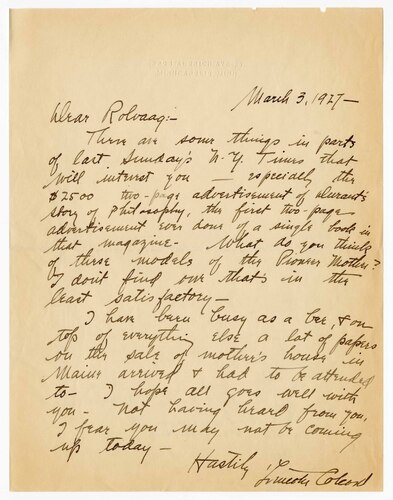 March 3, 1927—
Dear Rolvaag:-
There are some things in parts
of last Sunday's N.Y. Times that
will interest you — especially the
$2500 two-page advertisement of Durant's
Story of Philosophy, the first two-page
advertisement ever done of a single book in
that magazine. What do you think
of these models of the Pioneer Mother?
I don't find one that's in the
least satisfactory—
I have been busy as a bee, & on
top of everything else a lot of papers
on the sale of mother's house in
Maine arrived & had to be attended
to— I hope all goes well with
you— Not having heard from you,
I fear you may not be coming
up today—
Hastily
Lincoln Colcord